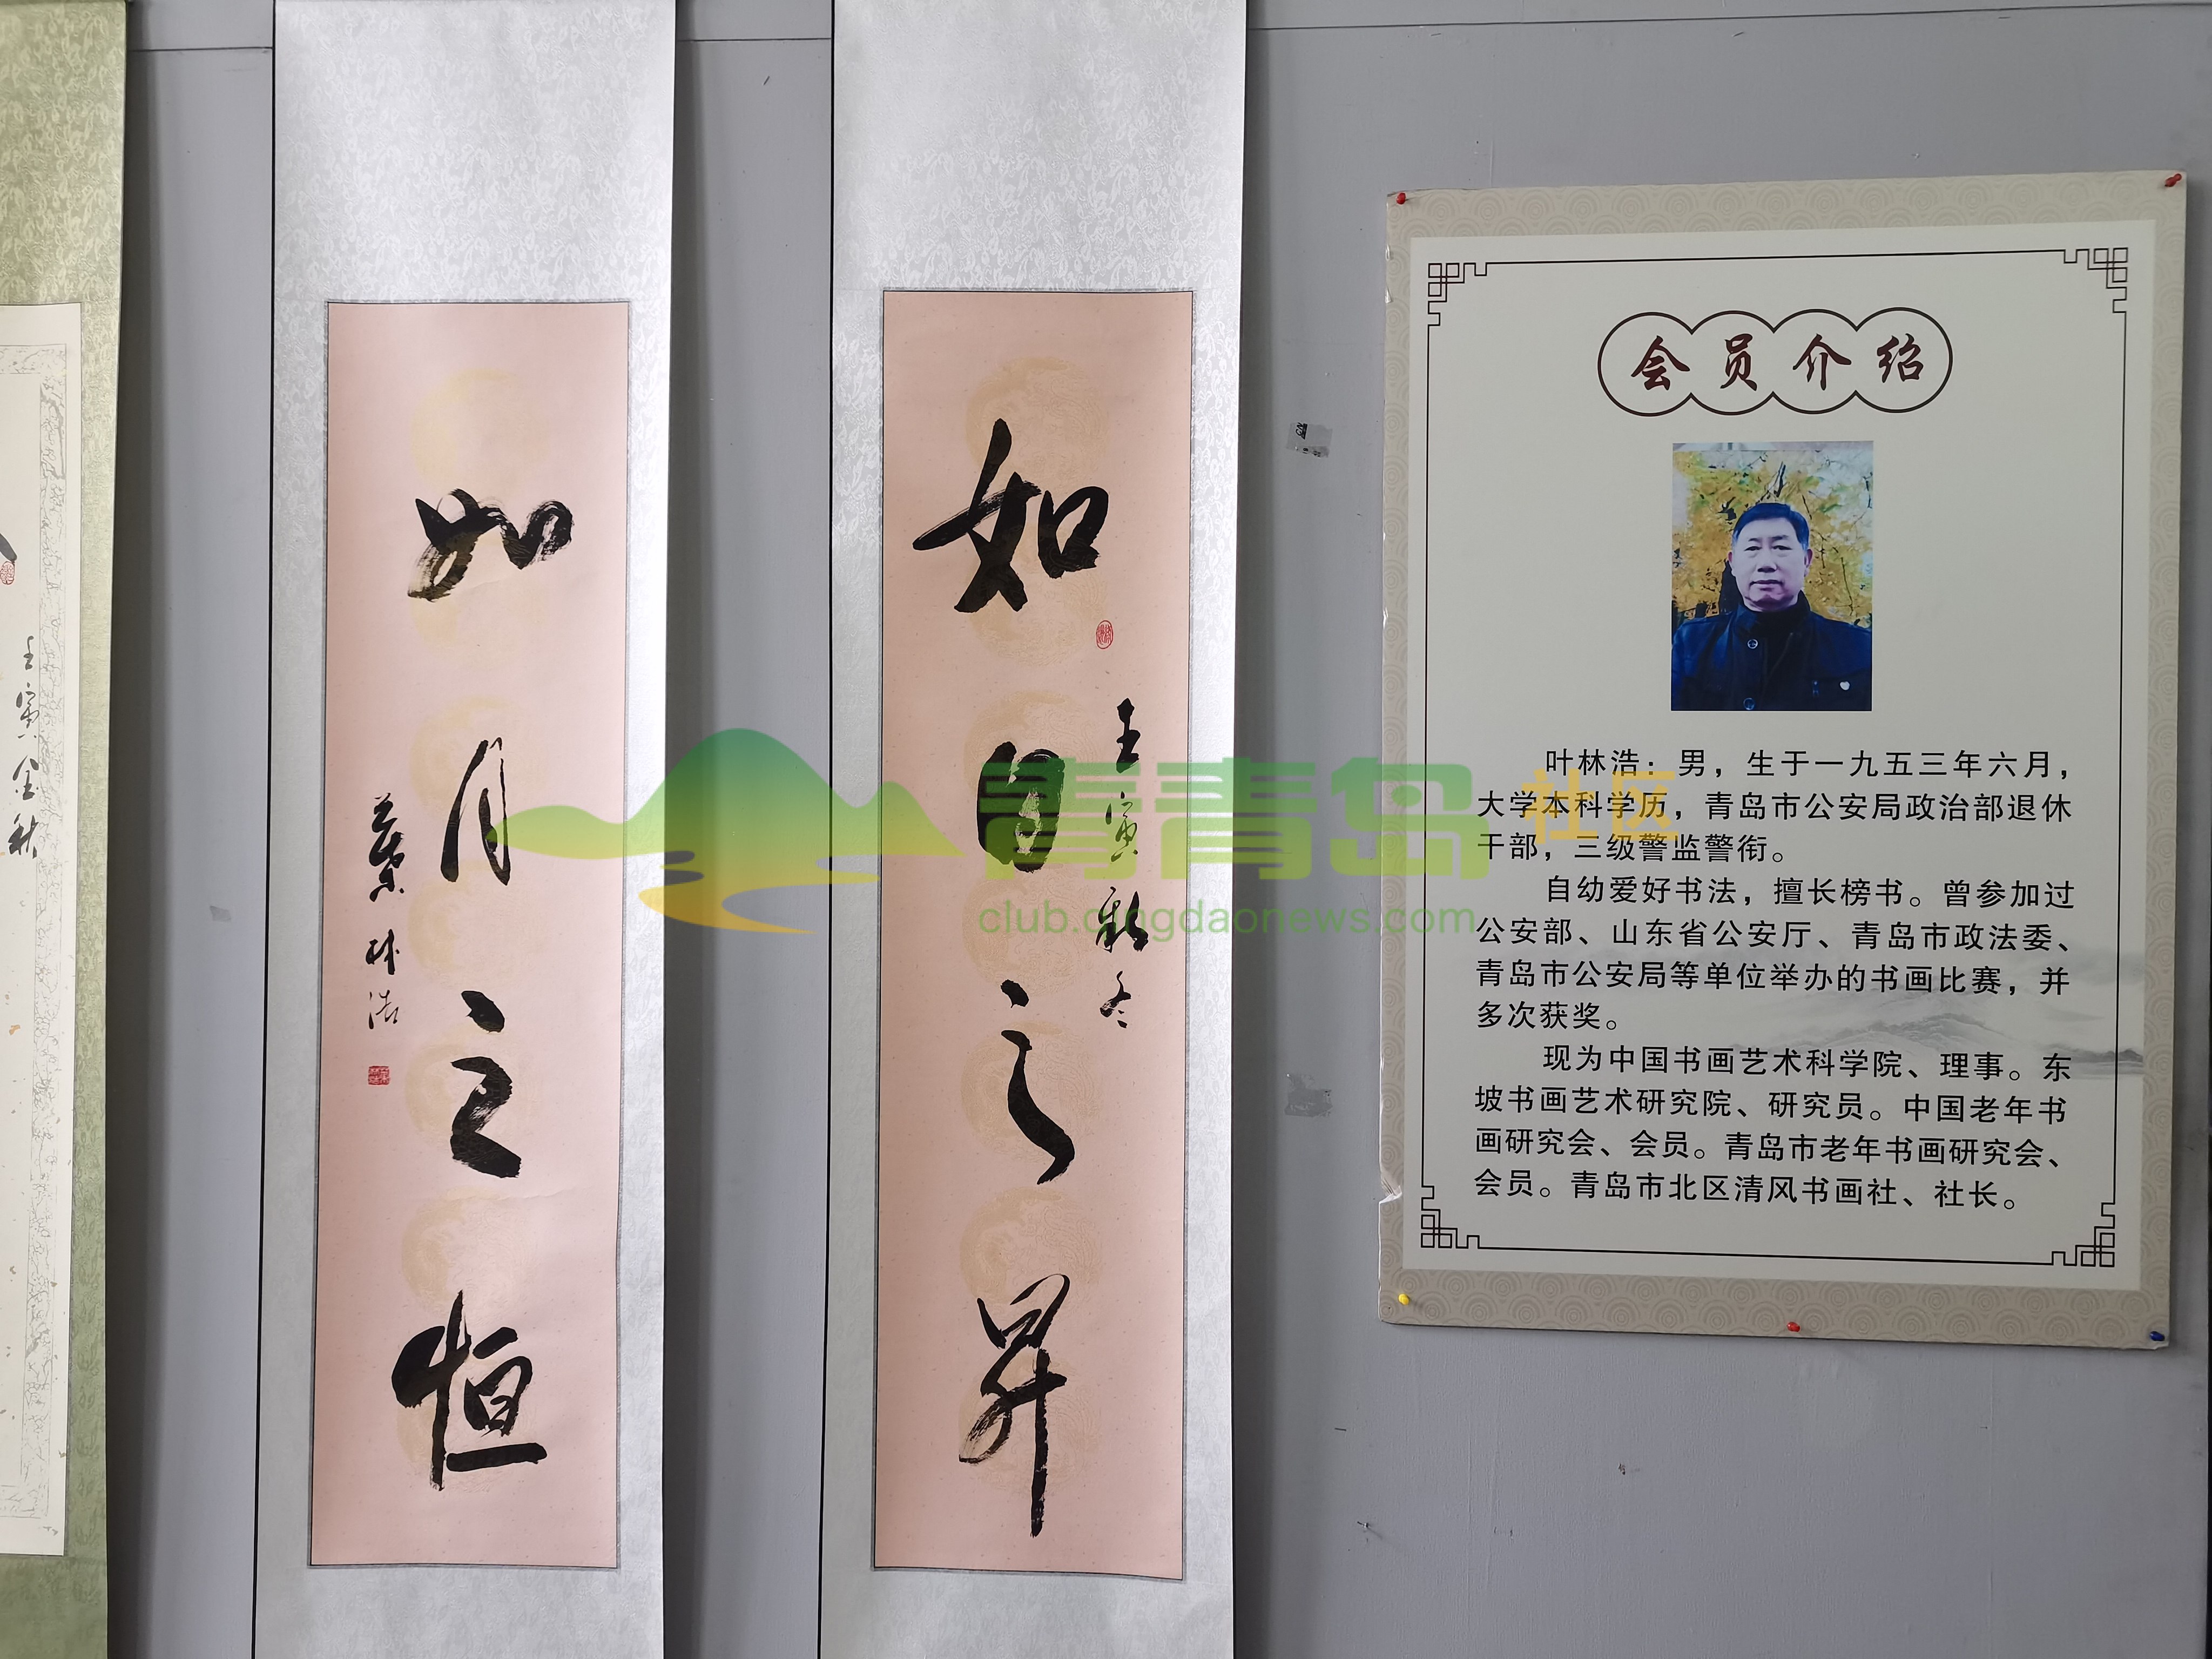 如日之昇
壬寅秋冬
如月之恒
葉林浩
壬寅金秋
会员介绍
叶林浩：男，生于一九五三年六月，
大学本科学历，青岛市公安局政治部退休
干部，三级警监警衔。
自幼爱好书法，擅长榜书。曾参加过
公安部、山东省公安厅、青岛市政法委、
青岛市公安局等单位举办的书画比赛，并
多次获奖。
现为中国书画艺术科学院、理事。东
坡书画艺术研究院、研究员。中国老年书
画研究会、会员。青岛市老年书画研究会、
会员。青岛市北区清风书画社、社长。
青青岛社区
club.qingdaonews.com